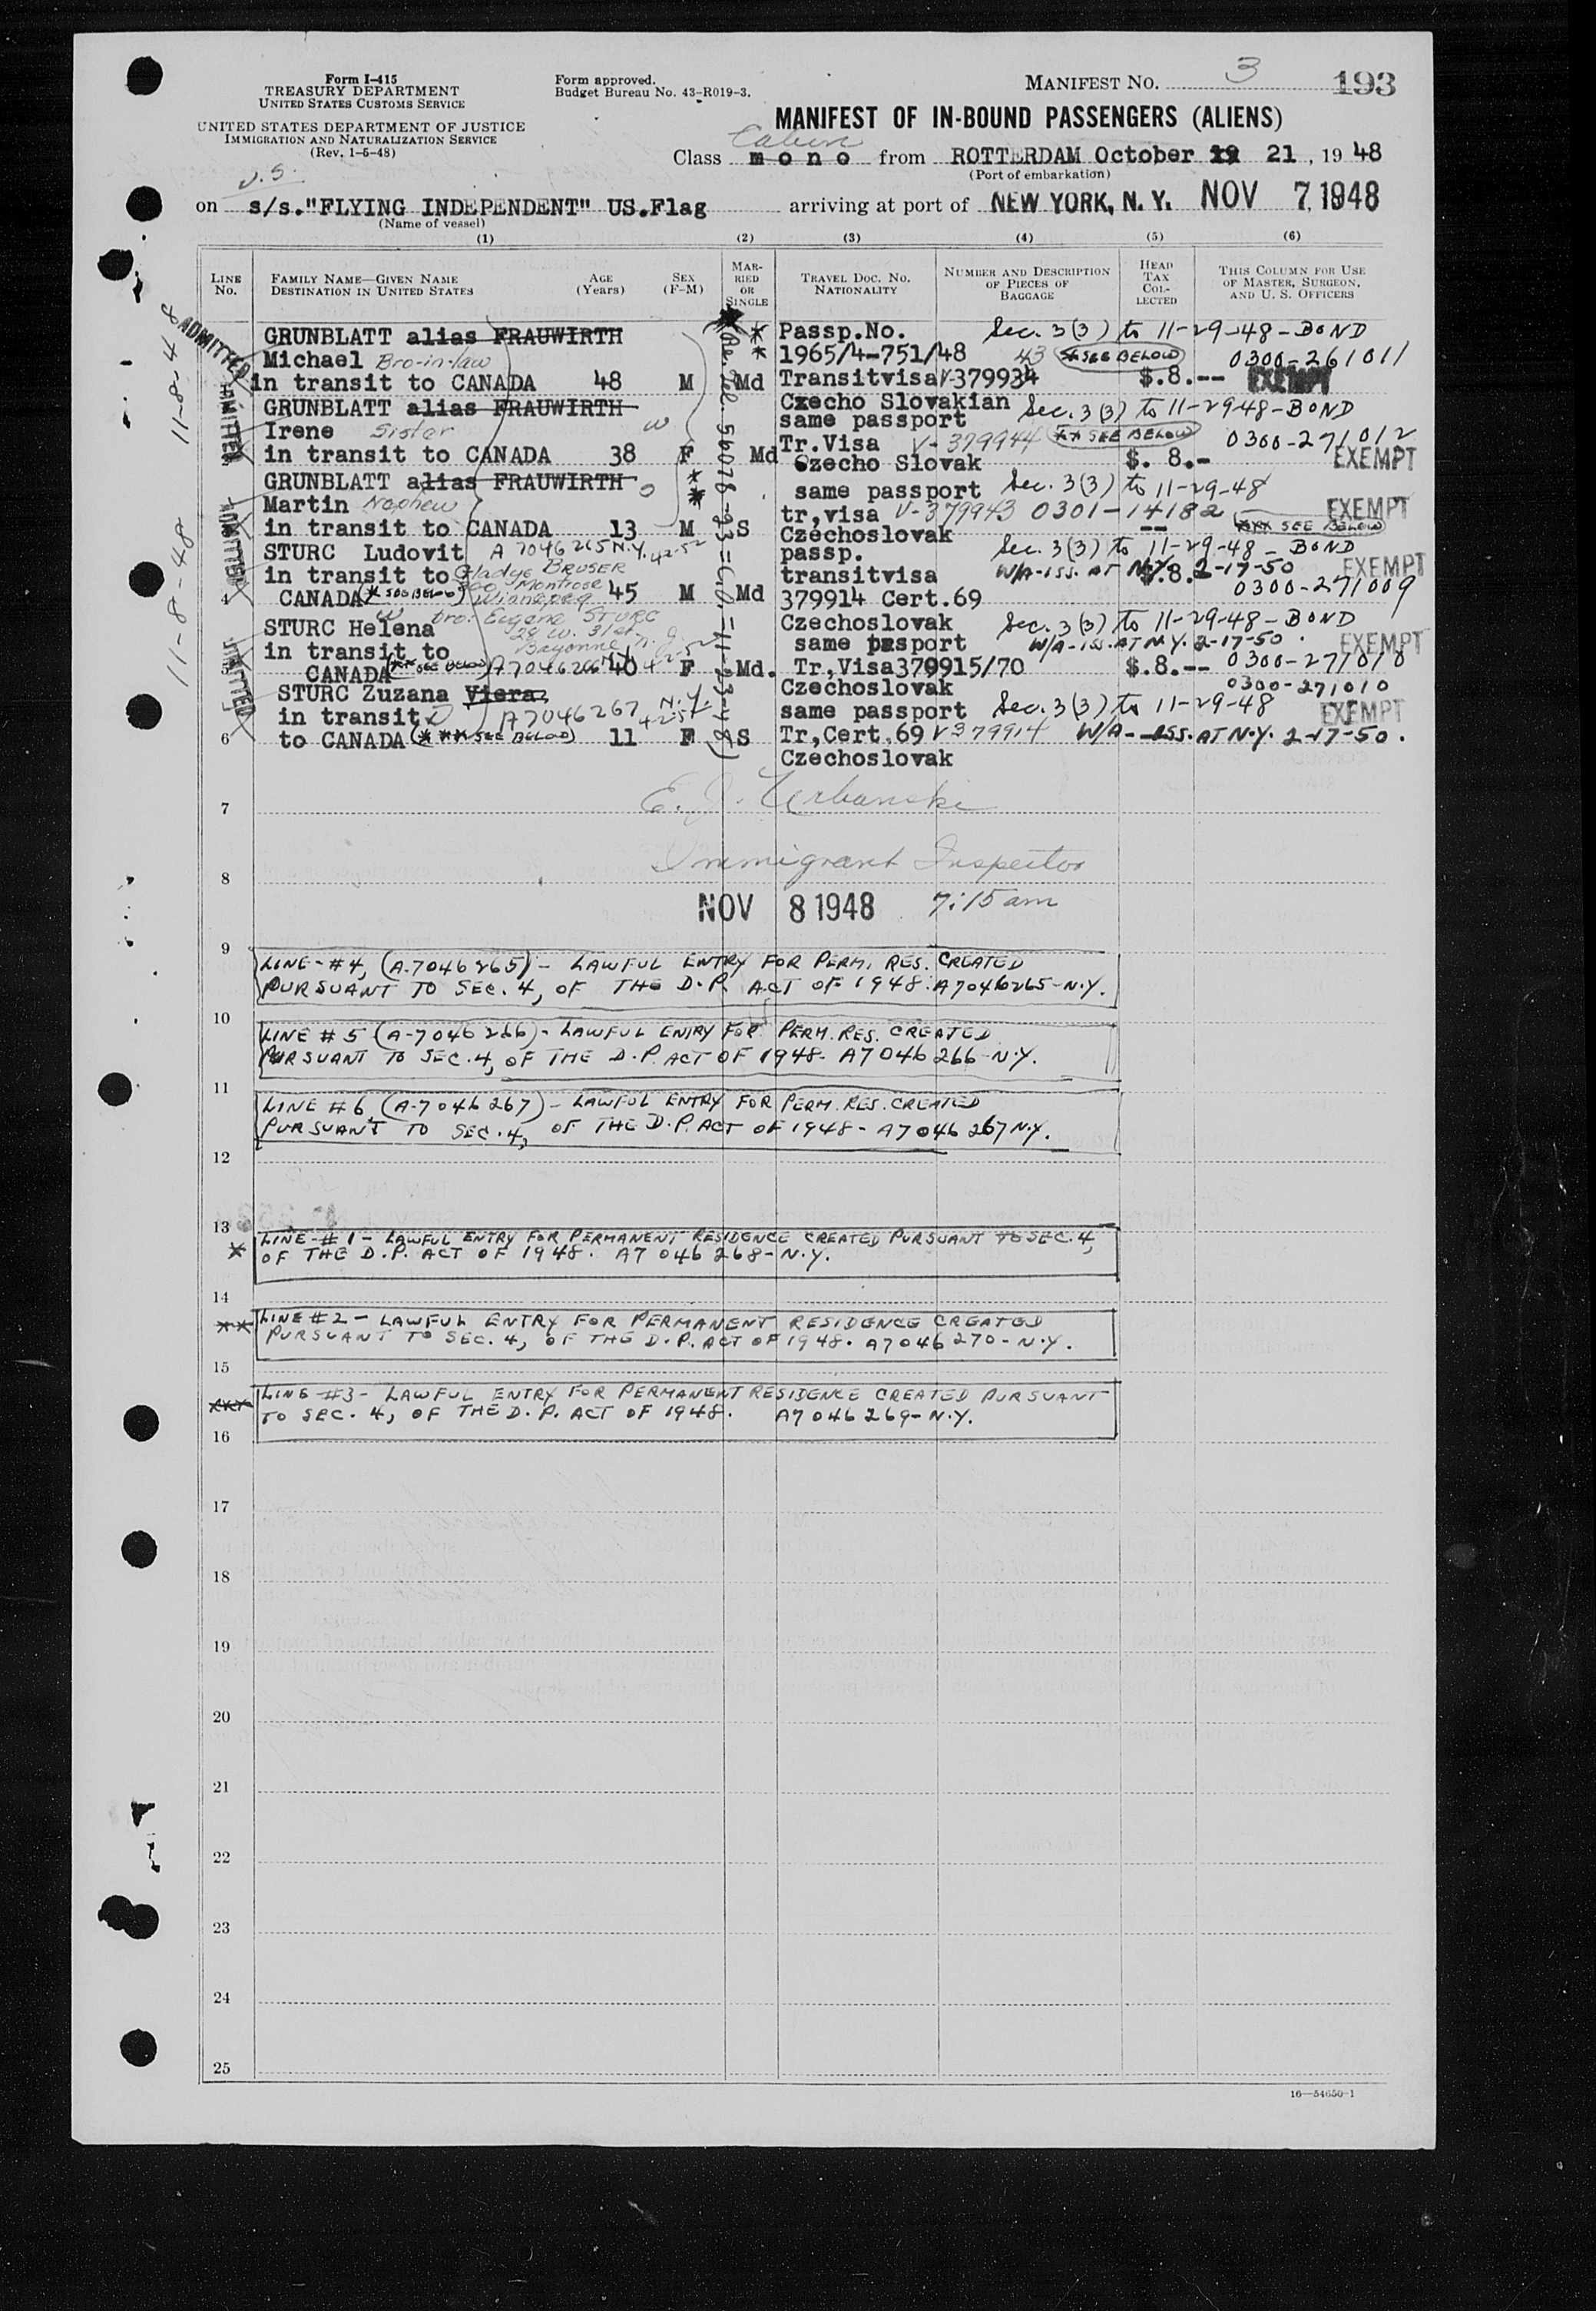 Form I-415
TREASURY DEPARTMENT
UNITED STATES CUSTOMS SERVICE
UNITED STATES DEPARTMENT OF JUSTICE
IMMIGRATION AND NATURALIZATION SERVICE
(Rev. 1-5-48)
Form approved.
Budget Bureau No. 43-R019-3.
MANIFEST NO. 3 193
MANIFEST OF IN-BOUND PASSENGERS (ALIENS)
Cabin
Class mono from ROTTERDAM October 21, 1948
(Port of embarkation)
U.S.
on s/s."FLYING INDEPENDENT" US.Flag arriving at port of NEW YORK, N.Y. NOV 7 1948
(Name of vessel)
(1) (2) (3) (4) (5) (6)
LINE No.
FAMILY NAME—GIVEN NAME
DESTINATION IN UNITED STATES
AGE (Years)
SEX (F-M)
MARRIED OR SINGLE
TRAVEL DOC. NO.
NATIONALITY
NUMBER AND DESCRIPTION OF PIECES OF BAGGAGE
HEAD TAX COLLECTED
THIS COLUMN FOR USE OF MASTER, SURGEON, AND U. S. OFFICERS
11-8-48
ADMITTED
GRUNBLATT alias FRAUWIRTH Passp.No. Sec. 3(3) to 11-29-48-BOND
Michael Bro-in-law 1965/4-751/48 43 * SEE BELOW 0300-261011
in transit to CANADA 48 M Md Transitvisa V-379934 $.8.-- EXEMPT
Czecho Slovakian
ADMITTED
GRUNBLATT alias FRAUWIRTH same passport Sec. 3(3) to 11-29-48-BOND
Irene Sister W Tr.Visa V-379944 ** SEE BELOW 0300-271012
in transit to CANADA 38 F Md Czecho Slovak $. 8.- EXEMPT
GRUNBLATT alias FRAUWIRTH same passport Sec. 3(3) to 11-29-48
Martin Nephew tr,visa V-379943 0301-14182 EXEMPT
in transit to CANADA 13 M S Czechoslovak -- *** SEE BELOW
11-8-48
ADMITTED
STURC Ludovit A 7046265 N.Y. 4-2-52 passp. Sec. 3(3) to 11-29-48 - BOND
in transit to Gladys BRUSER transitvisa W/A-ISS. AT N.Y. 2-17-50 $.8. EXEMPT
Montrose
4 CANADA (* SEE BELOW) Winnipeg 45 M Md 379914 Cert.69 0300-271009
W bro: Eugene STURC Czechoslovak
STURC Helena 29 W. 31 st same passport Sec. 3(3) to 11-29-48-BOND
in transit to Bayonne N.J. W/A-ISS. AT N.Y. 2-17-50. EXEMPT
5 CANADA (** SEE BELOW) A7046266 N.Y. 4-2-52 40 F Md. Tr,Visa379915/70 $.8.-- 0300-271010
Czechoslovak 0300-271010
ADMITTED
STURC Zuzana Viera same passport Sec. 3(3) to 11-29-48 EXEMPT
in transit D A7046267 N.Y. 4-2-52
6 to CANADA (*** SEE BELOW) 11 F S Tr,Cert.69 V379914 W/A-ISS. AT N.Y. 2-17-50.
Czechoslovak
7 E. J. Urbanski
8 Immigrant Inspector
NOV 8 1948 7:15 am
9
LINE-#4, (A-7046265) - LAWFUL ENTRY FOR PERM. RES. CREATED
PURSUANT TO SEC. 4, OF THE D.P. ACT OF 1948. A7046265-N.Y.
10
LINE #5 (A-7046266) - LAWFUL ENTRY FOR PERM. RES. CREATED
PURSUANT TO SEC. 4, OF THE D.P. ACT OF 1948- A7046266-N.Y.
11
LINE #6 (A-7046267) - LAWFUL ENTRY FOR PERM. RES. CREATED
PURSUANT TO SEC. 4, OF THE D.P. ACT OF 1948- A7046267 N.Y.
12
13
* LINE-#1 - LAWFUL ENTRY FOR PERMANENT RESIDENCE CREATED PURSUANT TO SEC. 4,
OF THE D.P. ACT OF 1948. A7046268-N.Y.
14
** LINE #2 - LAWFUL ENTRY FOR PERMANENT RESIDENCE CREATED
PURSUANT TO SEC. 4, OF THE D.P. ACT OF 1948. A7046270-N.Y.
15
*** LINE #3- LAWFUL ENTRY FOR PERMANENT RESIDENCE CREATED PURSUANT
TO SEC. 4, OF THE D.P. ACT OF 1948. A7046269-N.Y.
16
17
18
19
20
21
22
23
24
25
16—54650-1